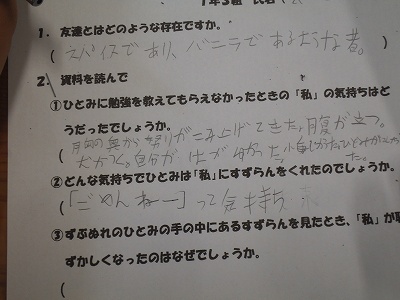 1年3組 氏名
1. 友達とはどのような存在ですか。
( スパイスであり、バニラであるような者。 )
2. 資料を読んで
①ひとみに勉強を教えてもらえなかったときの「私」の気持ちはど
うだったでしょうか。
( 奥から怒りがこみ上げてきた、腹が立つ。
自分
②どんな気持ちでひとみは「私」にすずらんをくれたのでしょうか。
( 「ごめんねー」って気持ち
③ずぶぬれのひとみの手の中にあるすずらんを見たとき、「私」が
ずかしくなったのはなぜでしょうか。
(